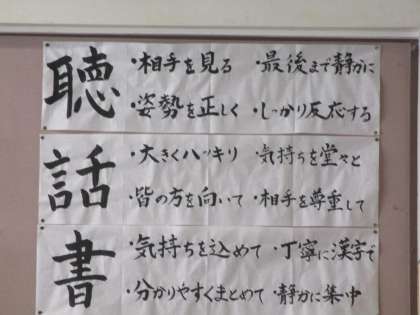 聴
・相手を見る ・最後まで静かに
・姿勢を正しく ・しっかり反応する
話
・大きくハッキリ ・気持ちを堂々と
・皆の方を向いて ・相手を尊重して
書
・気持ちを込めて ・丁寧に漢字で
・分かりやすくまとめて ・静かに集中